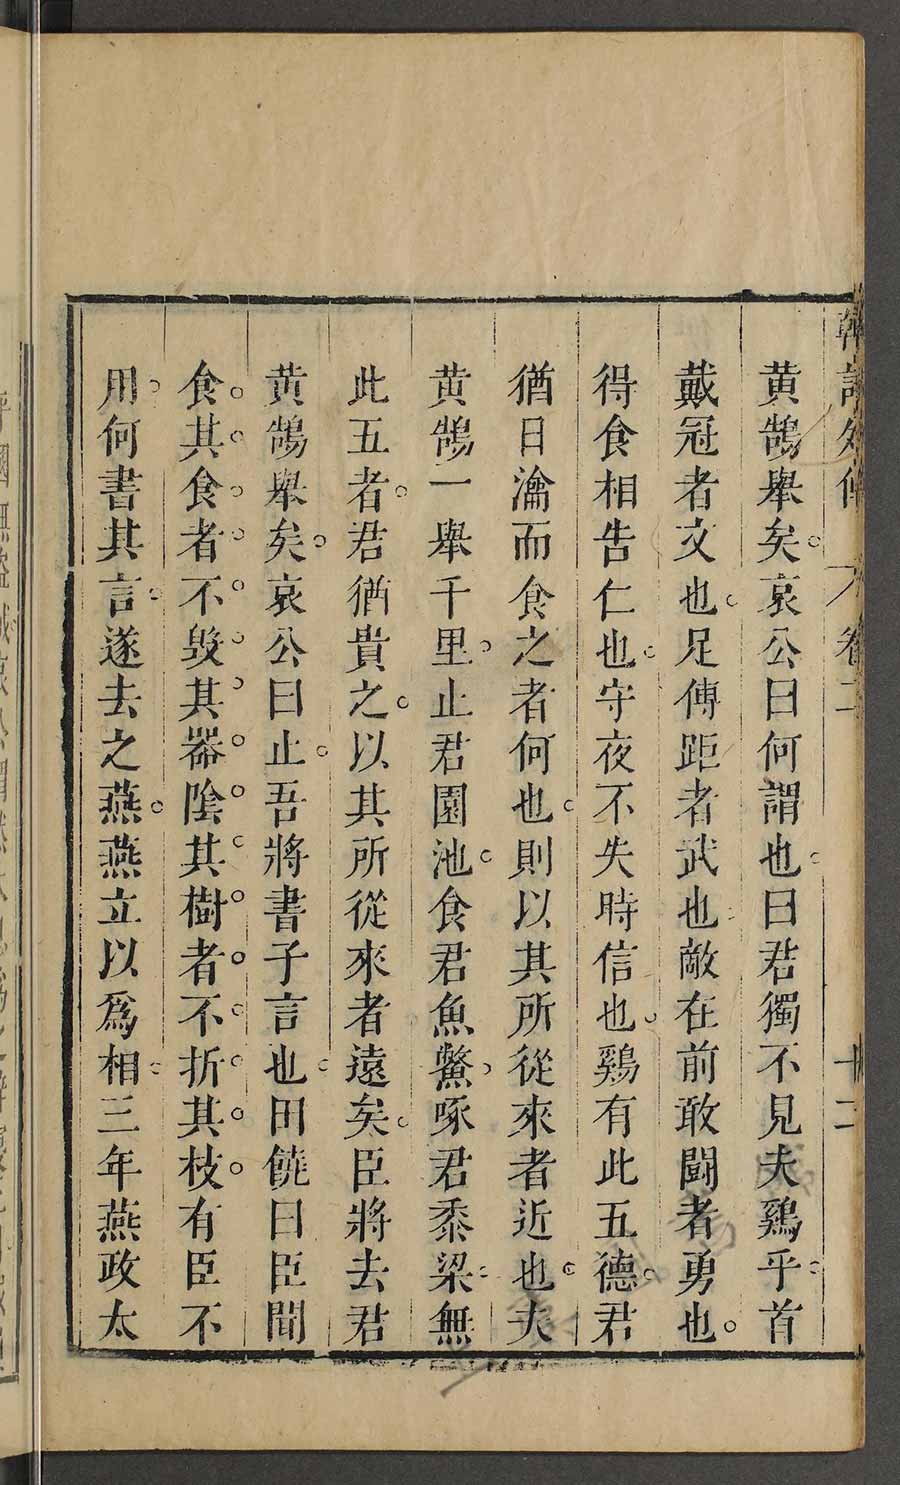 韓詩外傳 卷二 十二
黃鵠舉矣。哀公曰何謂也。曰君獨不見夫鷄乎。首
戴冠者文也。足傅距者武也。敵在前敢鬬者勇也。
得食相告仁也。守夜不失時信也。鷄有此五德。君
猶日瀹而食之者何也。則以其所從來者近也。夫
黃鵠一舉千里。止君園池。食君魚鱉。啄君黍梁。無
此五者。君猶貴之。以其所從來者遠矣。臣將去君
黃鵠舉矣。哀公曰止。吾將書子言也。田饒曰臣聞
食其食者不毀其器。陰其樹者不折其枝。有臣不
用。何書其言。遂去之燕。燕立以爲相。三年燕政太